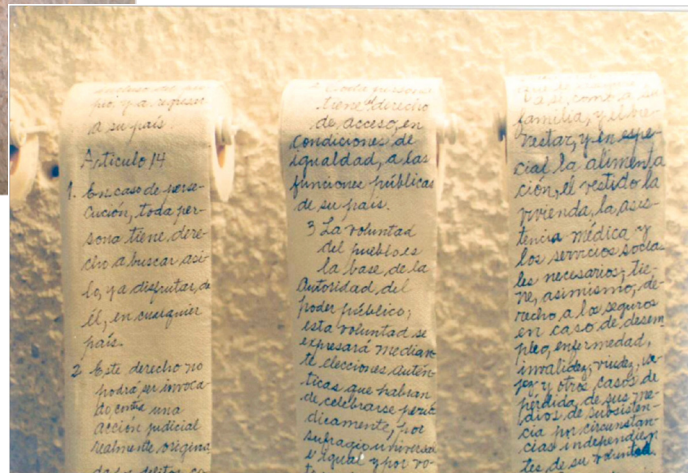 pio, y a regresar
a su país
Artículo 14
1. En caso de perse-
cución, toda per-
sona tiene dere-
cho a buscar asi-
lo, y a disfrutar de
él, en cualquier
país.
2 Este derecho no
podrá ser invoca-
do contra una
acción judicial
realmente origina
da por delitos co
2 Toda persona
tiene derecho
de acceso, en
condiciones de
igualdad, a las
funciones públicas
de su país.
3 La voluntad
del pueblo es
la base de la
Autoridad del
poder público;
esta voluntad se
expresará median
te elecciones autén
ticas que habrán
de celebrarse perió
dicamente, por
sufragio universal
e igual y por vo-
como a su
familia, y el bie-
nestar, y en espe-
cial la alimenta
ción, el vestido la
vivienda, la asis-
tencia médica y
los servicios socia
les necesarios; tie-
ne, asimismo, de-
recho, a los seguros
en caso de desem
pleo, enfermedad,
invalidez, viudez, ve-
jez y otros casos de
pérdida, de sus me-
dios de subsisten-
cia por circunstan-
cias independien
tes de su voluntad